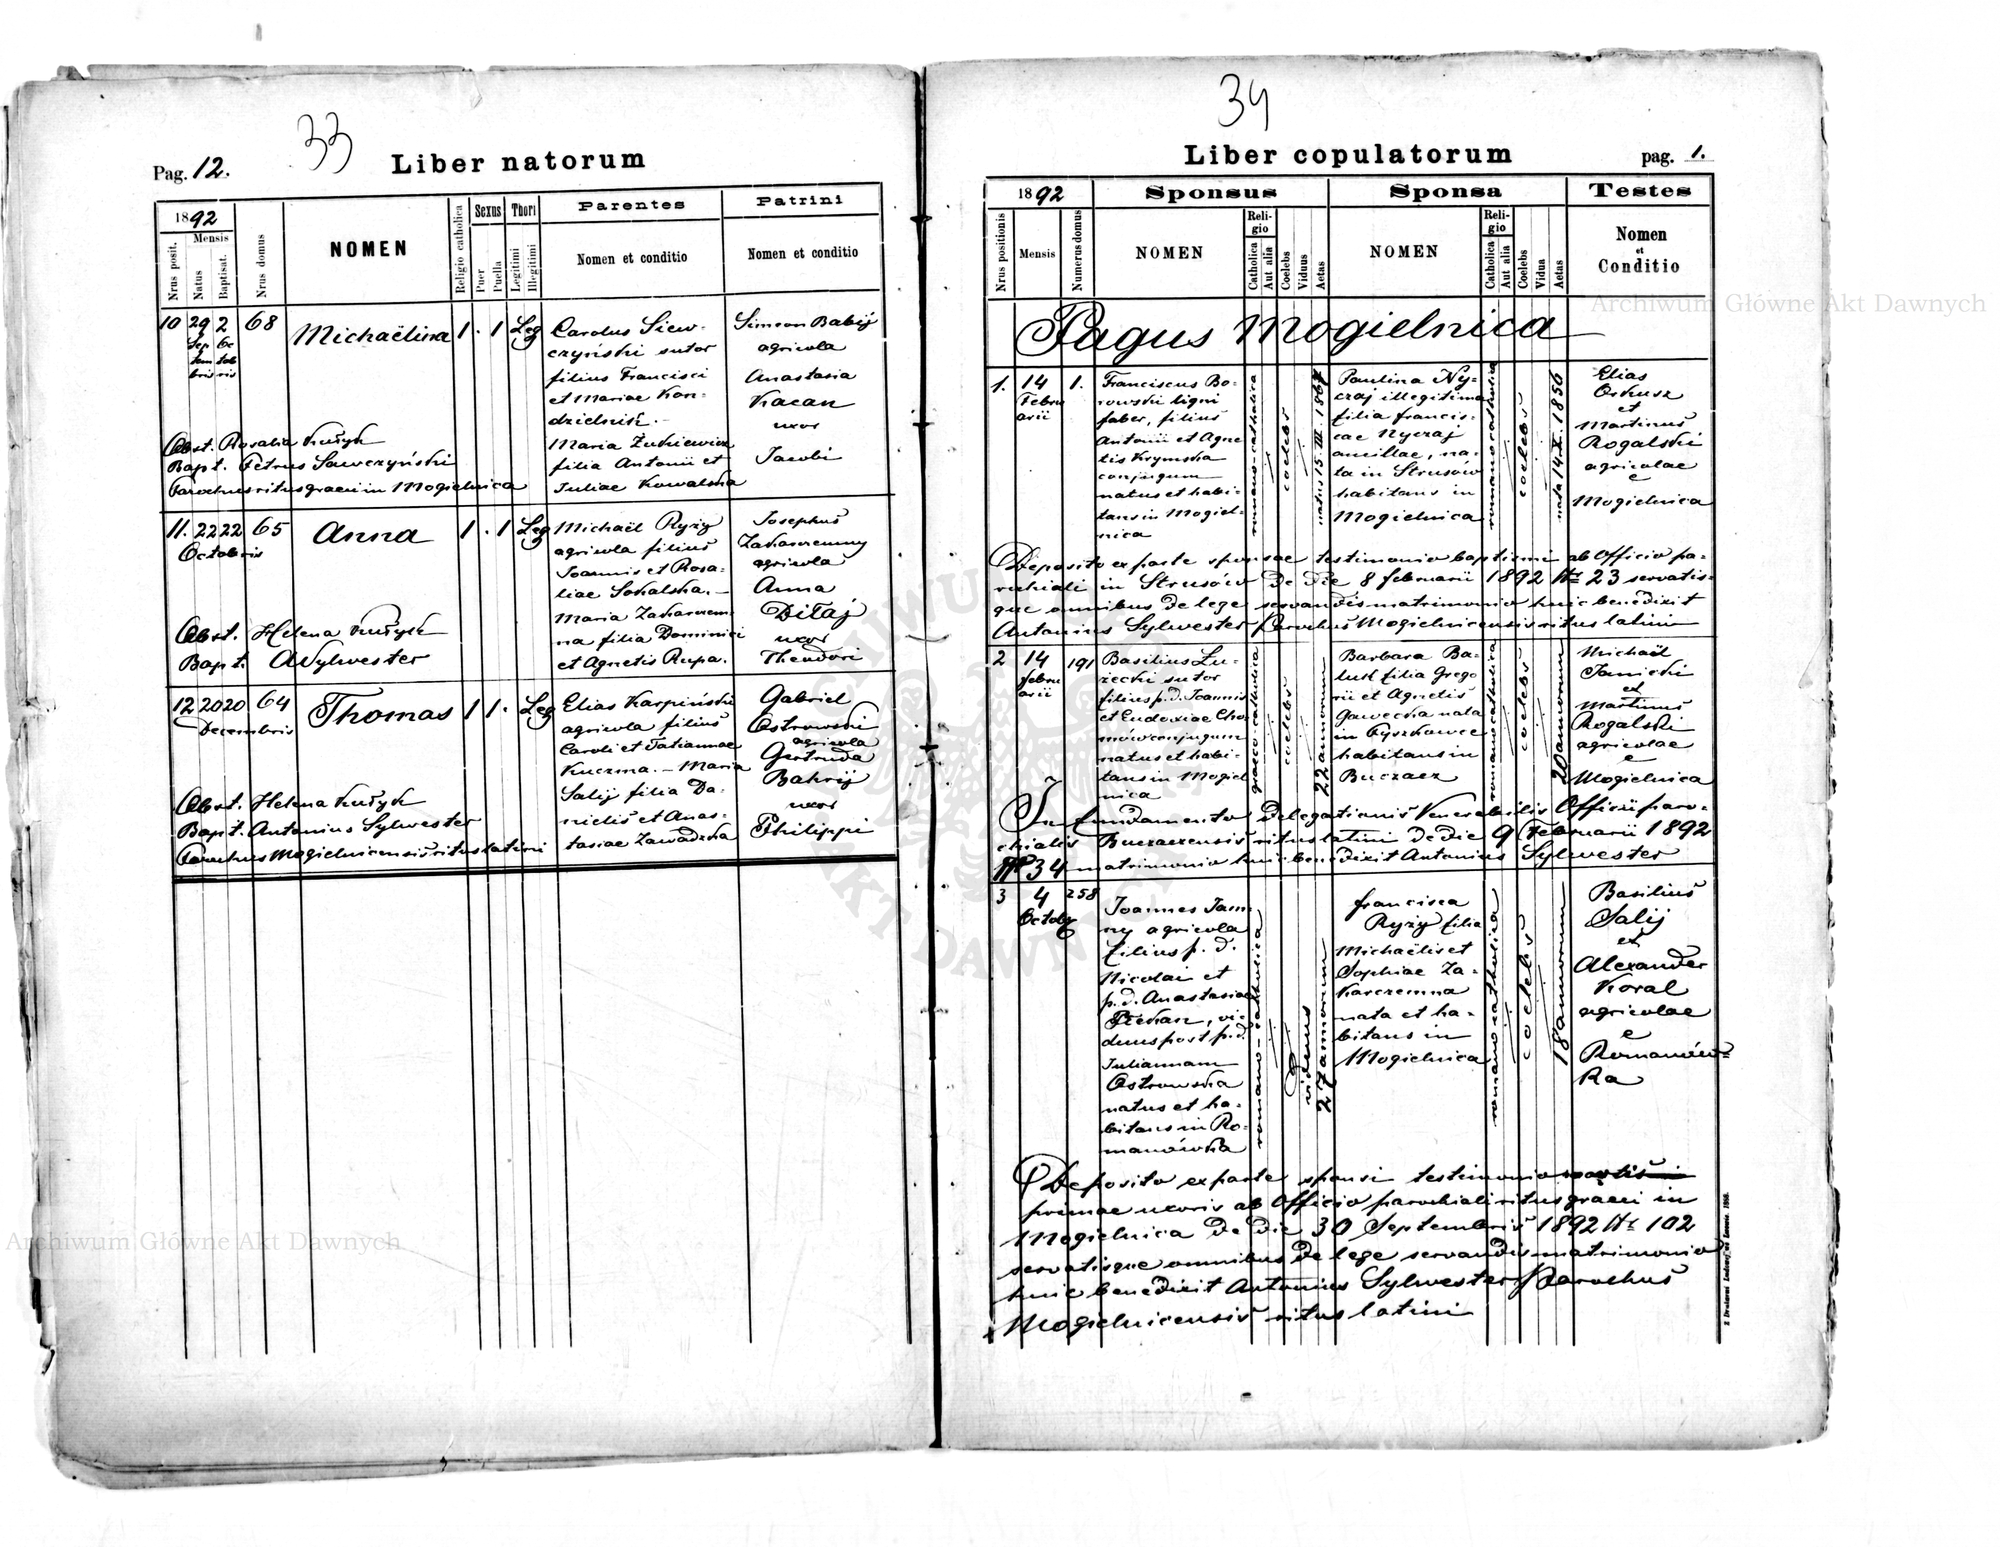 33
Pag. 12.
Liber natorum
1892
Nrus posit.
Mensis
Natus
Baptisat.
Nrus domus
NOMEN
Religio catholica
Sexus
Puer
Puella
Thori
Legitimi
Illegitimi
Parentes
Nomen et conditio
Patrini
Nomen et conditio
10 29 2 68 Michaëlina 1 . 1 Leg
Sep Oc
tem tob
bris ris
Carolus Siew-
czyński sutor
filius Francisci
et Mariae Kon-
dzielnik. -
Maria Żukiewicz
filia Antonii et
Juliae Kowalska
Simeon Babij
agricola
Anastasia
Kacan
uxor
Jacobi
Obst. Rosalia Kusyk
Bapt. Petrus Sawczyński
Parochus ritus graeci in Mogielnica
11. 22 22 65 Anna 1 . 1 Leg
Octobris
Michaël Ryży
agricola filius
Joannis et Rosa-
liae Sokalska. -
Maria Zakarczem-
na filia Dominici
et Agnetis Rupa.
Josephus
Zakarczemny
agricola
Anna
Ditaj
uxor
Theodori
Obst. Helena Kusyk
Bapt. ASylwester
12 20 20 64 Thomas 1 1 . Leg
Decembris
Elias Karpiński
agricola filius
Caroli et Tatiannae
Kuczma. - Maria
Salij filia Da-
nielis et Anas-
tasiae Zawadzka
Gabriel
Ostrowski
agricola
Gertruda
Bahrij
uxor
Philippi
Obst. Helena Kusyk
Bapt. Antonius Sylwester
Parochus Mogielnicensis ritus latini
34
Liber copulatorum
pag. 1.
1892
Nrus positionis
Mensis
Numerus domus
Sponsus
NOMEN
Religio
Catholica
Aut alia
Coelebs
Viduus
Aetas
Sponsa
NOMEN
Religio
Catholica
Aut alia
Coelebs
Vidua
Aetas
Testes
Nomen
et
Conditio
Pagus Mogielnica
1. 14 1.
Febru
arii
Franciscus Bo-
rowski ligni
faber, filius
Antonii et Agne
tis Krymska
conjugum
natus et habi-
tans in Mogiel-
nica
romano-catholica
coelebs
natus 15. III. 1867
Paulina Ny-
czaj illegitima
filia francis-
cae Nyczaj
ancillae, na-
ta in Strusów
habitans in
Mogielnica
romano catholica
coelebs
nata 14. X. 1856
Elias
Oskusz
et
Martinus
Rogalski
agricolae
e
Mogielnica
Deposito ex parte sponsae testimonio baptismi ab Officio pa-
rochiali in Strusów de die 8 februarii 1892 Nr 23 servatis-
que omnibus de lege servandis matrimonio huic benedixit
Antonius Sylwester Parochus Mogielnicensis ritus latini
2 14 191
febru
arii
Basilius Lu-
zecki sutor
filius p.d. Joannis
et Eudoxiae Cho
mów conjugum
natus et habi-
tans in Mogiel
nica
graeco-catholica
coelebs
22 annorum
Barbara Ba-
luk filia Grego
rii et Agnetis
Gawecka nata
in Pyszkowce
habitans in
Buczacz
romano catholica
coelebs
20 annorum
Michaël
Janicki
et
Martinus
Rogalski
agricolae
e
Mogielnica
In fundamento delegationis Venerabilis Officii paro-
chialis Buczacensis ritus latini de die 9 Februarii 1892
Nr 34 matrimonio huic benedixit Antonius Sylwester
3 4 258
Octobr
Joannes Jam-
ny agricola
filius p. d.
Nicolai et
p. d. Anastasiae
Plekan, vi-
duus post p.d.
Juliannam
Ostrowska
natus et ha-
bitans in Ro-
manówka
romano-catholica
viduus
27 annorum
francisca
Ryży filia
Michaëlis et
Sophiae Za-
karczemna
nata et ha-
bitans in
Mogielnica
romano catholica
coelebs
18 annorum
Basilius
Salij
et
Alexander
Koral
agricolae
e
Romanów-
ka
Deposito ex parte sponsi testimonio mortis
primae uxoris ab Officio parochiali ritus graeci in
Mogielnica de die 30 Septembris 1892 Nr 102
servatisque omnibus de lege servandis matrimonio
huic benedixit Antonius Sylwester Parochus
Mogielnicensis ritus latini
Archiwum Główne Akt Dawnych
Archiwum Główne Akt Dawnych